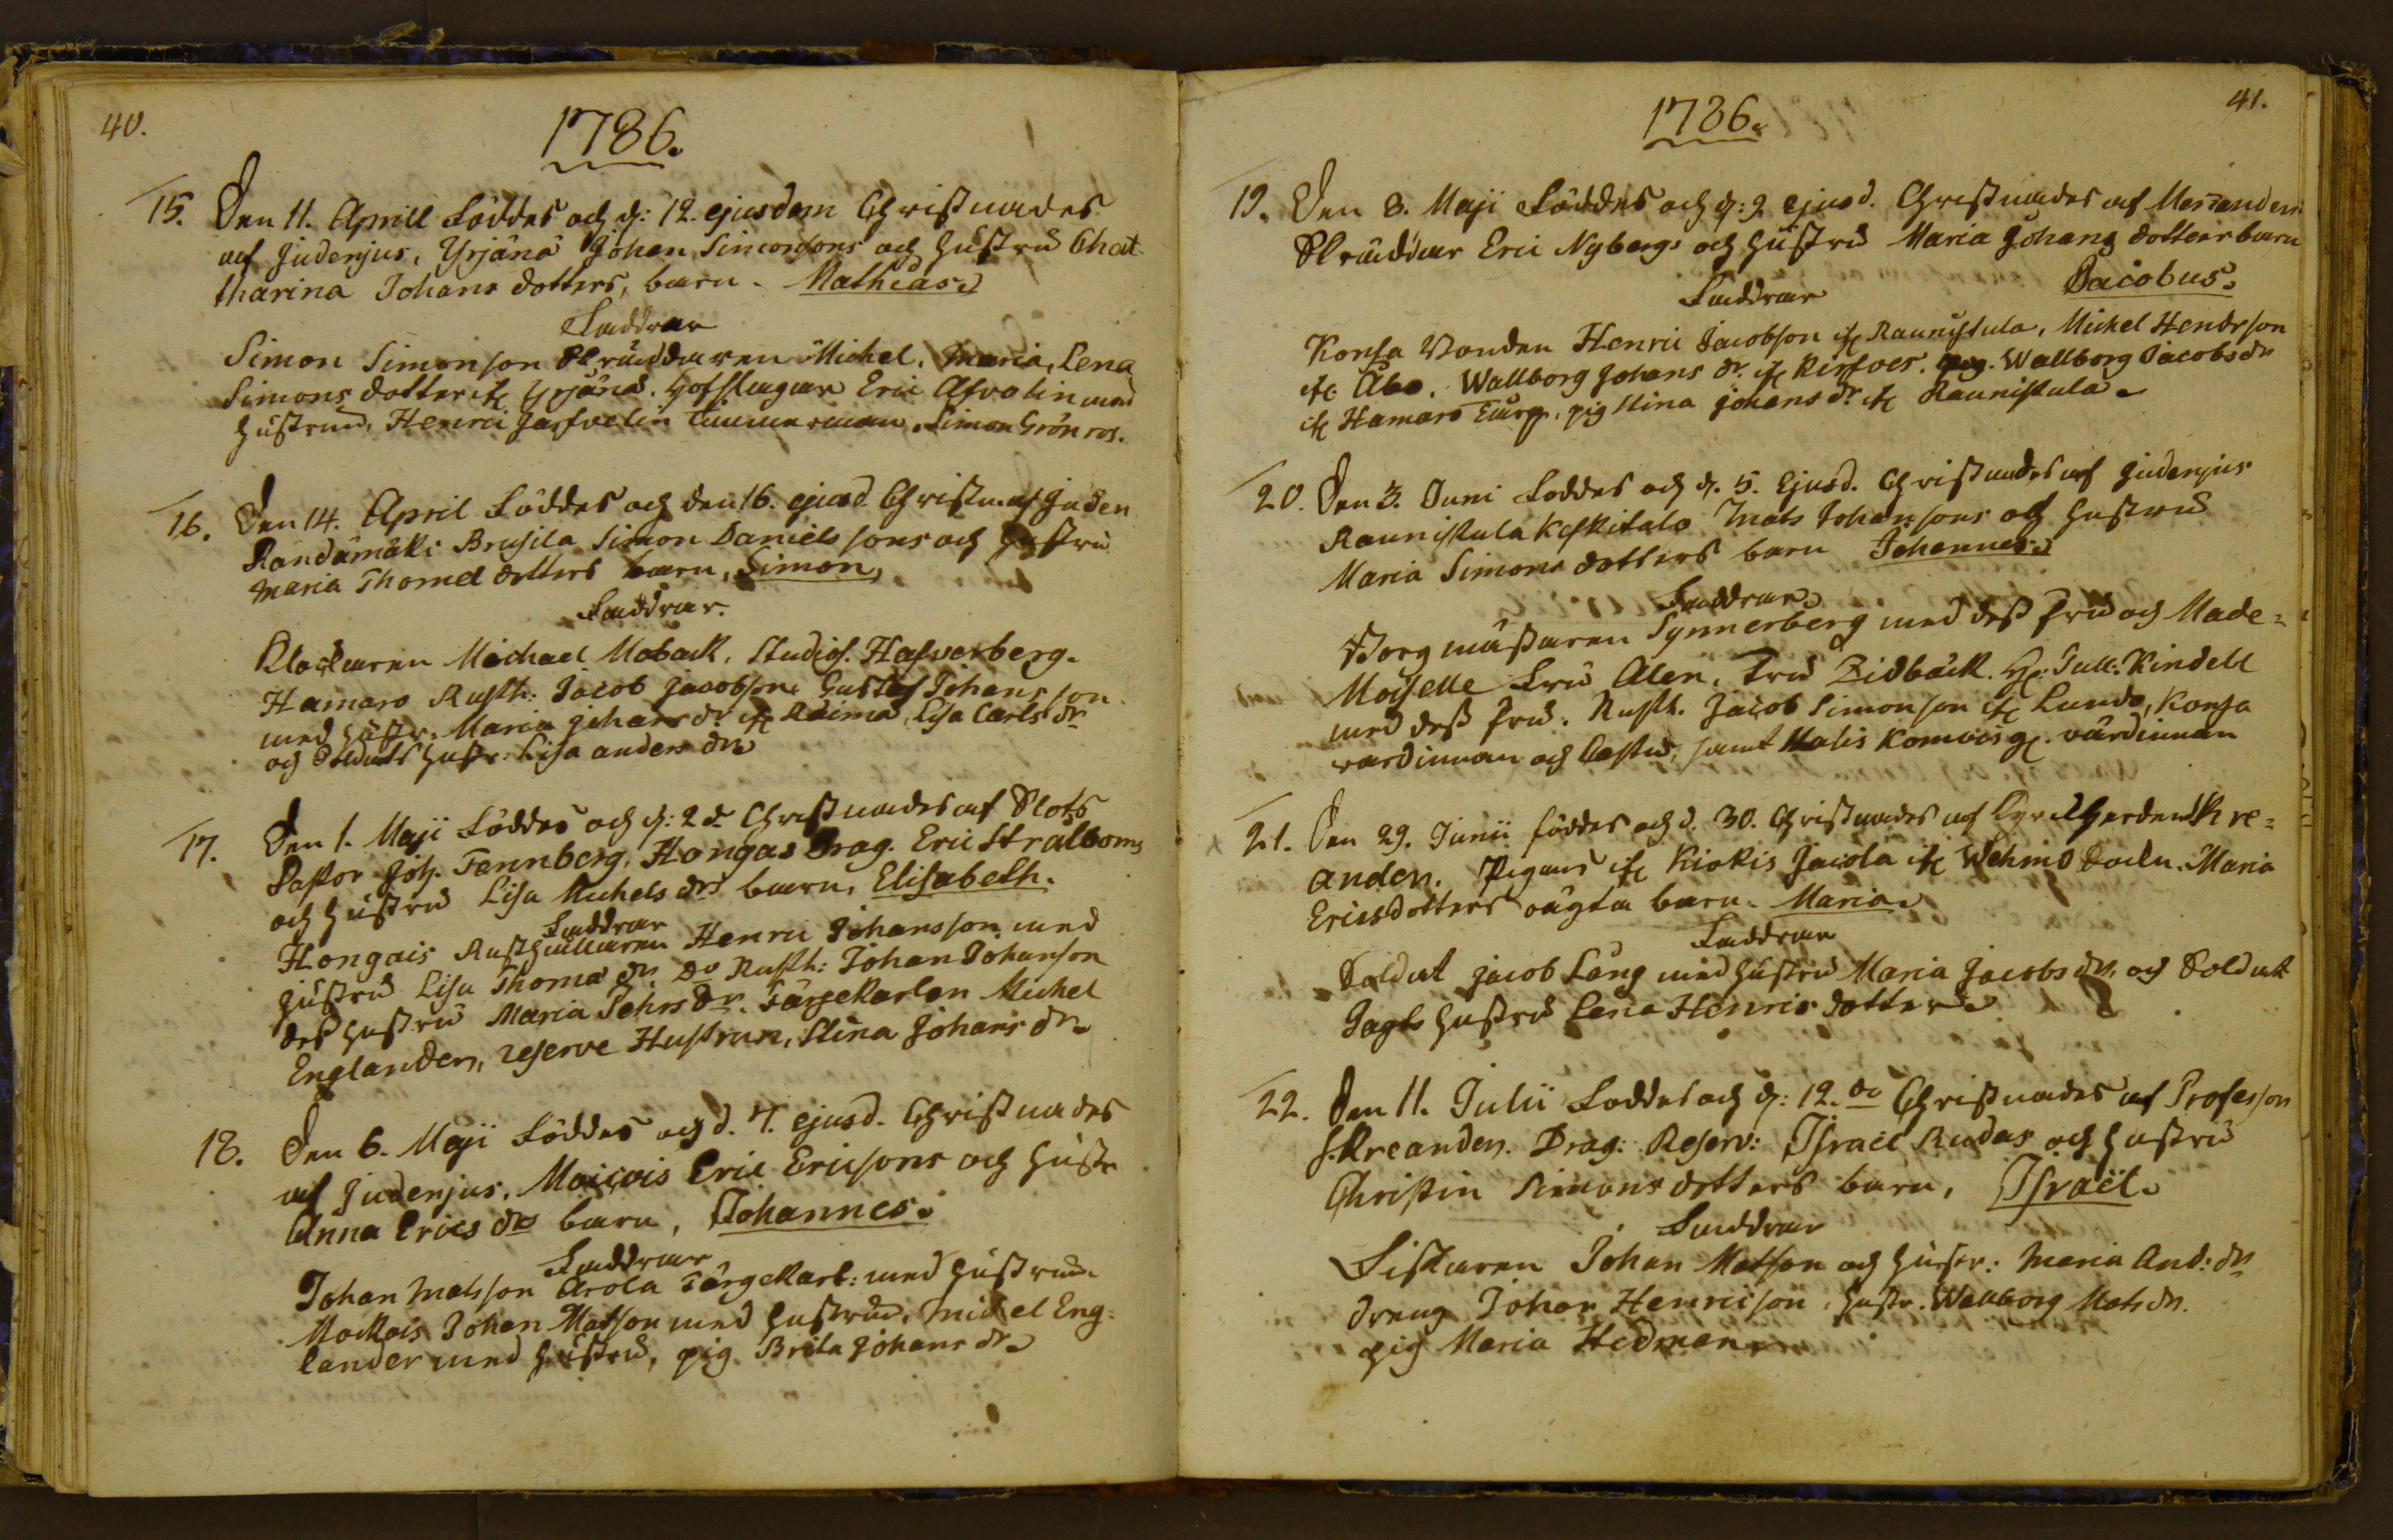 40.
1786.
15. Den 11. Aprill Föddes och d: 12. ejusdem Christnades
af Judenjus, Yrjänä Johan Simonsons och hustru Chat-
tharina Johans dotters, barn. Mathias.
Faddrar
Simon Simonson Skräddaren Michel, Maria, Lena
Simons dotter ifr Yrjänä. Hofslagar Eric Afvolin med
hustrun, Henric Jerfvelin Timmerman. Simon Grönros.
16. Den 14. April Föddes och den 16. ejusd Christn. af Juden
Randämäki Brusila Simon Daniels sons och Hustru
Maria Thomæ dotters barn, Simon,
Faddrar.
Klockaren Michael Moback, Studios. Hasverberg.
Hamaro Rusth: Jacob Jacobson. Gustaf Johans son
med hustr. Maria Johans dr. ifr Räimä, Lisa Carls dr
och Soldats hustr. Lisa anders dr
17. Den 1. Maji Föddes och d: 2 d Christnades af Slots
Pastor Joh. Tennberg, Hongas Drag. Eric Stralboms
och hustru Lisa Michels drs barn, Elisabeth.
Faddrar
Hongais Rusthållaren Henric Johansson med
hustru Lisa Thoma dr. Do Rusth: Johan Johanson
dess hustru Maria Pehrs dr. Färgekarlen Michel
Englander, reserve Hustrun, Stina Johans dr
18. Den 6. Maji Föddes och d. 7. ejusd. Christnades
af Judenjus, Moicois Eric Ericsons och Hustr
Anna Erics drs barn, Johannes.
Faddrar
Johan Matsson Arola Färgekarl: med hustrun
Mockois Johan Matson med hustrun, Michel Eng-
lander med hustru, pig. Brita Johans dr
41.
1786.
19. Den 8. Maji Föddes och d: 9 ejusd. Christnades af Merianden
Skräddar Eric Nybergs och hustru Maria Johans dotters barn
Jacobus.
Faddrar
Konsa Bonden Henric Jacobson ifr Raunistula, Michel Hendrson
ifr Åbo. Wallborg Johans dr. ifr Kirstoes. pig. Wallborg Jacobs dr
ifr Hamaro Torp, pig Stina Johans dr ifr Raunistula.
20. Den 3. Juni Föddes och d. 5. Ejusd. Christnades af Judenjus
Raunistula Keskitalo Mats Johan sons och hustru
Maria Simons dotters barn Johannes.
Faddrar
Borgmästaren Synnerberg med dess fru och Made=
Moiselle Fru Alen, Fru Zidbäck. H: Tull: Kindell
med dess fru. Rusth. Jacob Simonson ifr Lundo, Konsa
värdinnan och samt Halis Komois g. värdinnan
21. Den 29. Junii föddes och d. 30. Christnades af Kyrckherden Kre=
anden. Pigans ifr Kiokis Jacola ifr Wehmo Sockn. Maria
Ericsdotters oägta barn. Maria.
Faddrar
Soldat Jacob Lång med hustru Maria Jacobs dr. och Soldat
Jagts hustru Lena Henrics dotter.
22. Den 11. Julii Föddes och d: 12. do Christnades af Professor
J. Kreanden. Drag: Reserv: Israel Rudas och hustru
Christin Simons dotters barn, Israël.
Faddrar
Fiskaren Johan Matson och hustr: Maria And: dr
dreng Johan Henricson, hustr. Wallborg Mats dr.
pig Maria Hedman.